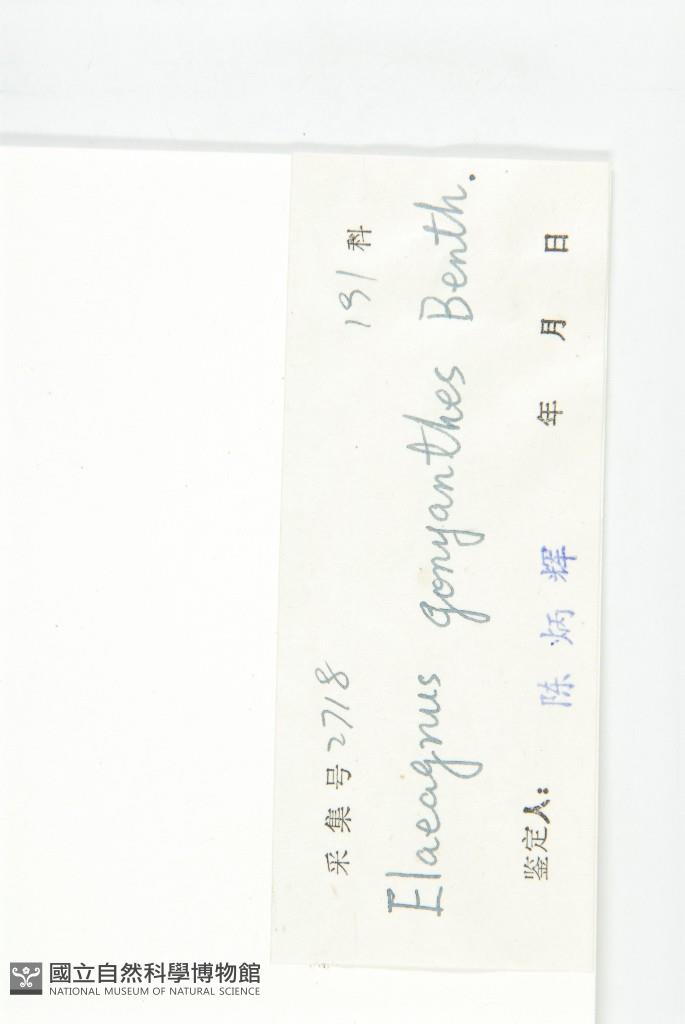 采集号 2718 131 科
Elaeagnus gonyanthes Benth.
鉴定人: 陈炳辉 年 月 日
國立自然科學博物館
NATIONAL MUSEUM OF NATURAL SCIENCE